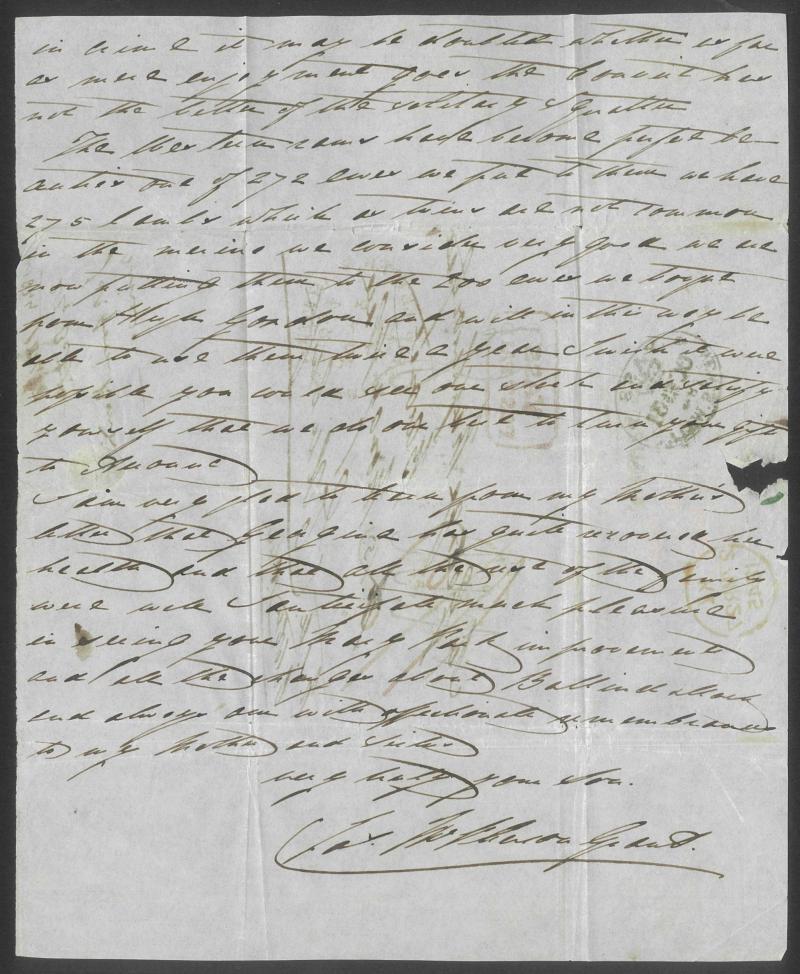 in crime it may be doubted whether as far
as mere enjoyment goes the Convict has
not the better of the solitary Squatter
The Western rams have become perfect be-
auties out of 272 ewes we put to them we have
275 lambs which as twins are not common
in the merino we consider very good we are
now putting them to the 200 ewes we bought
from Hugh Gordon and will in this way be
able to use them twice a year I wish it were
possible you could see our stock and satisfy
yourself that we do our best to turn your gift
to account
I am very glad to learn from my Mother's
letter that Georgina has quite recovered her
health and that all the rest of the family
were well I anticipate much pleasure
in seeing your many Park improvements
and all the changes about Ballindalloch
and always am with affectionate remembrances
to my Mother and Sisters
very truly your Son.
Jas. McPherson Grant.